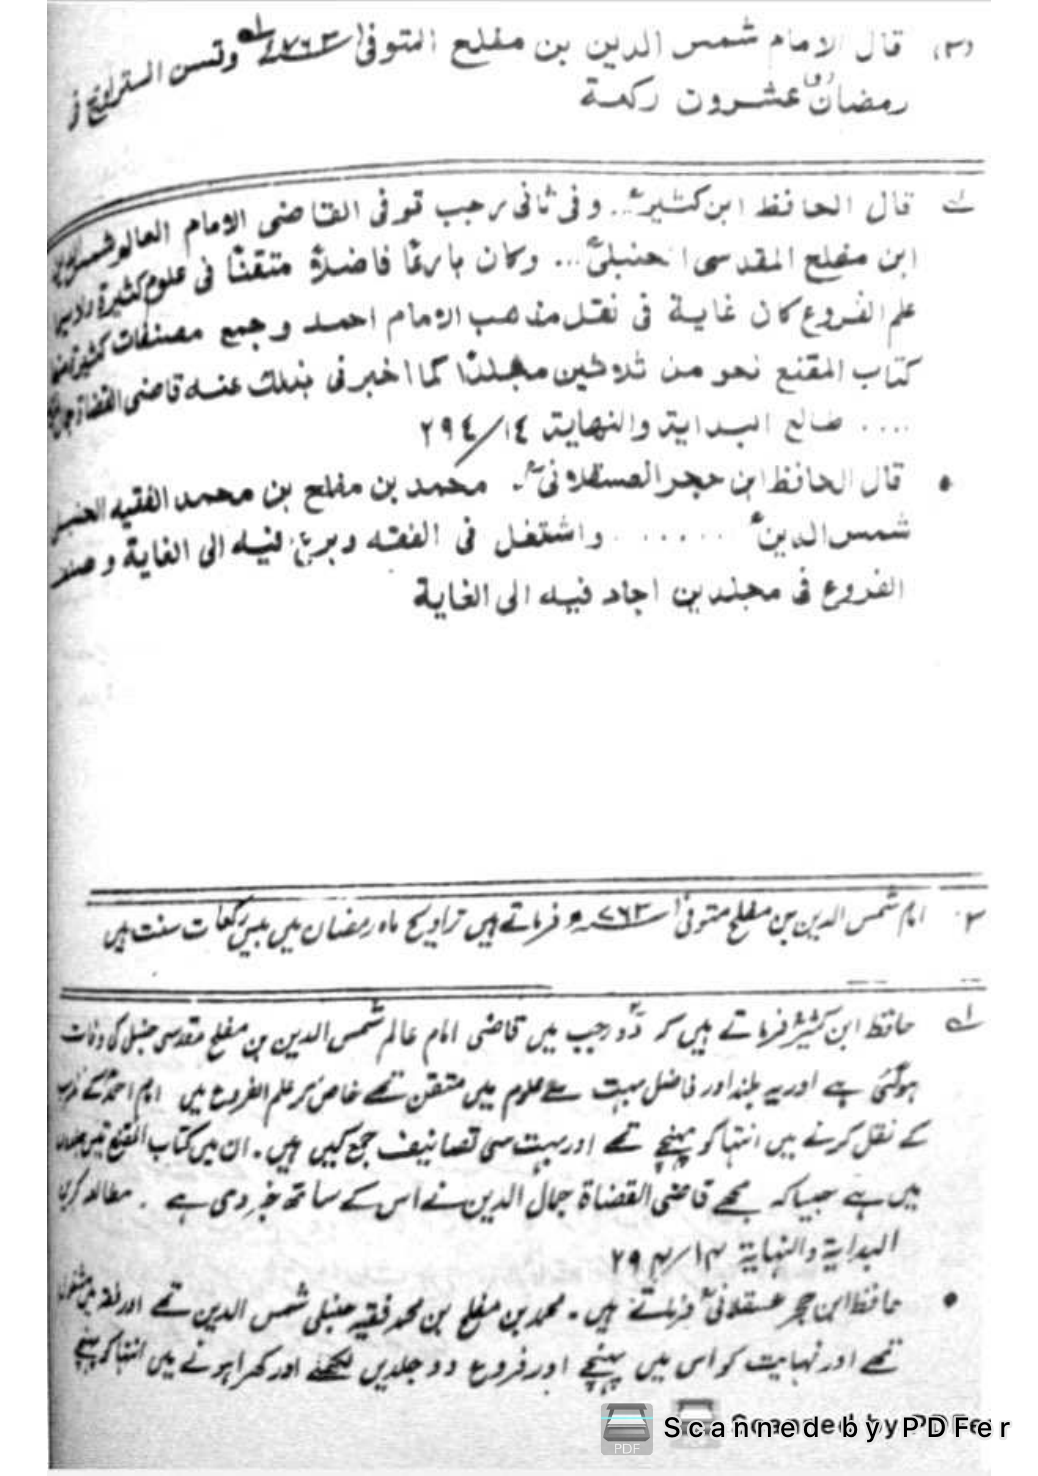 (٣) قال الامام شمس الدين بن مفلح المتوفى ٧٦٣ وتسن التراويح فى
رمضان عشرون ركعة
قال الحافظ ابن كثير .. و فى ثانى رجب توفى القاضى الامام العالم شمس الدين
ابن مفلح المقدسى الحنبلى ... وكان بارعًا فاضلاً متقنًا فى علوم كثيرة
علم الفروع كان غاية فى نقل مذهب الامام احمد و جمع مصنفات كثيرة منها
كتاب المقنع نحو من ثلاثين مجلدًا كما اخبرنى بذلك عنه قاضى القضاة
.... طالع البداية والنهاية ١٤/٢٩٤
• قال الحافظ ابن حجر العسقلانى . محمد بن مفلح بن محمد الفقيه الحنبلى
شمس الدين ...... واشتغل فى الفقه وبرع فيه الى الغاية و صنف
الفروع فى مجلدين اجاد فيه الى الغاية
٣. امام شمس الدین بن مفلح متوفیٰ ۷۶۳ فرماتے ہیں تراویح ماہ رمضان میں بیس رکعات سنت ہیں
حافظ ابن کثیر فرماتے ہیں کہ دو رجب میں قاضی امام عالم شمس الدین بن مفلح مقدسی حنبلی کی وفات
ہوگئی ہے اور یہ بلند اور فاضل بہت سے علوم میں متقن تھے خاص کر علم الفروع میں امام احمد کے مذہب
کے نقل کرنے میں انتہا کو پہنچے تھے اور بہت سی تصانیف جمع کیں ہیں . ان میں کتاب المقنع تیس جلدوں
میں ہے جیسا کہ مجھے قاضی القضاة جمال الدین نے اس کے ساتھ خبر دی ہے . مطالعہ کریں
البدایة والنہایة ۱۴/۲۹۴
• حافظ ابن حجر عسقلانی فرماتے ہیں . محمد بن مفلح بن محمد فقیہ حنبلی شمس الدین تھے اور فقہ میں مشغول
تھے اور نہایت کو اس میں پہنچے اور فروع دو جلدیں لکھنے اور کھرا ہونے میں انتہا کو پہنچے
Scanned by PDFer
Scanned by PDFer